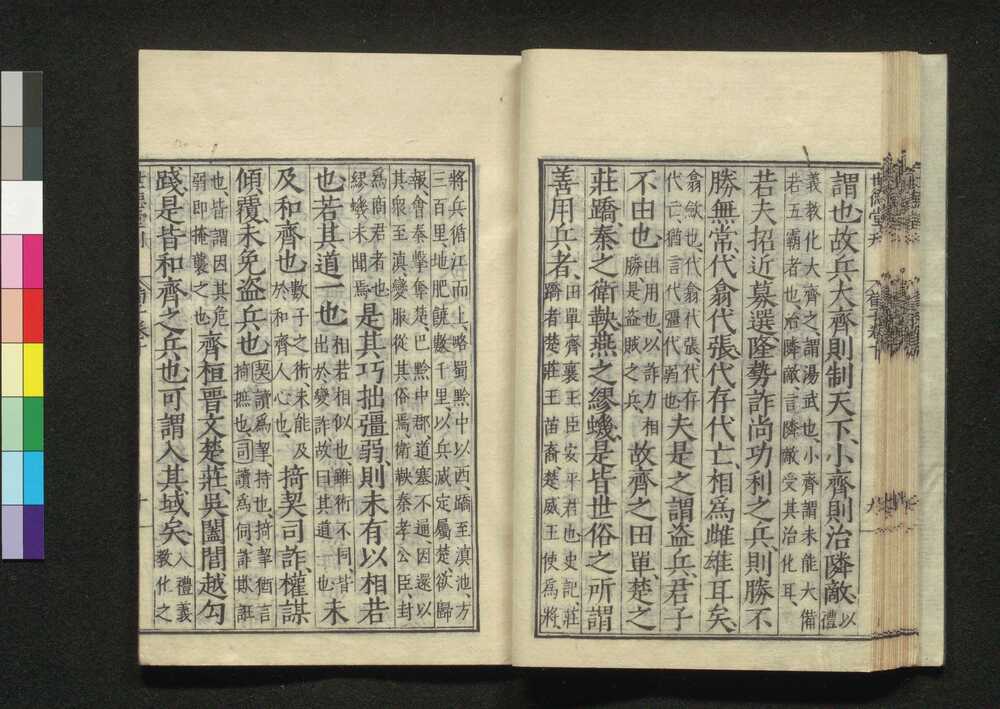 謂也故兵大齊則制天下、小齊則治隣敵、以禮
義教化大齊之謂湯武也、小齊謂未能大備若五霸者也、治隣敵、言隣敵受其治化耳、
若夫招近募選、隆勢詐尚功利之兵、則勝不
勝無常、代翕代張、代存代亡、相爲雌雄耳矣、
翕歛也、代翕代張代存代亡、猶言代彊代弱也、夫是之謂盗兵、君子
不由也、由用也、以詐力相勝是盗賊之兵、故齊之田單、楚之
莊蹻、秦之衛鞅、燕之繆蟣、是皆世俗之所謂
善用兵者、田單齊襄王臣安平君也、史記莊蹻者楚莊王苗裔、楚威王使爲將、
將兵循江而上、略蜀黔中以西、蹻至滇池、方三百里、地肥饒數千里、以兵威定屬楚、欲歸
報、會秦擊奪楚巴黔中郡、道塞不通、因還以其衆至滇、變服從其俗焉、衛鞅秦孝公臣、封
爲商君者也、繆蟣未聞焉、是其巧拙彊弱、則未有以相若
也、若其道一也、相若相似也、雖術不同皆出於變詐故曰其道一也、未
及和齊也、數子之術、未能及於和齊人心也、掎契司詐、權謀
傾覆、未免盗兵也、契讀爲挈、持也、掎挈猶言掎摭也、司讀爲伺、詐欺誑
也、皆謂因其危弱即掩襲之也、齊桓晋文楚莊、吳闔閭越勾
踐、是皆和齊之兵也、可謂入其域矣、入禮義教化之